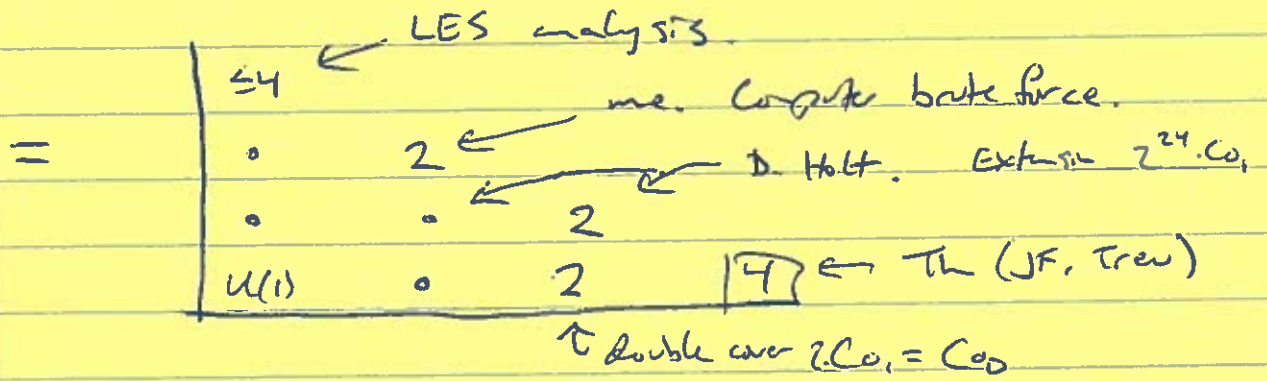 LES analysis.
≤4
me. Computer brute force.
= • 2
D. Holt. Extension 2^24.Co₁
• • 2
U(1) • 2 4 ← Th (JF, Treu)
↑ double cover 2.Co₁ = Co₀